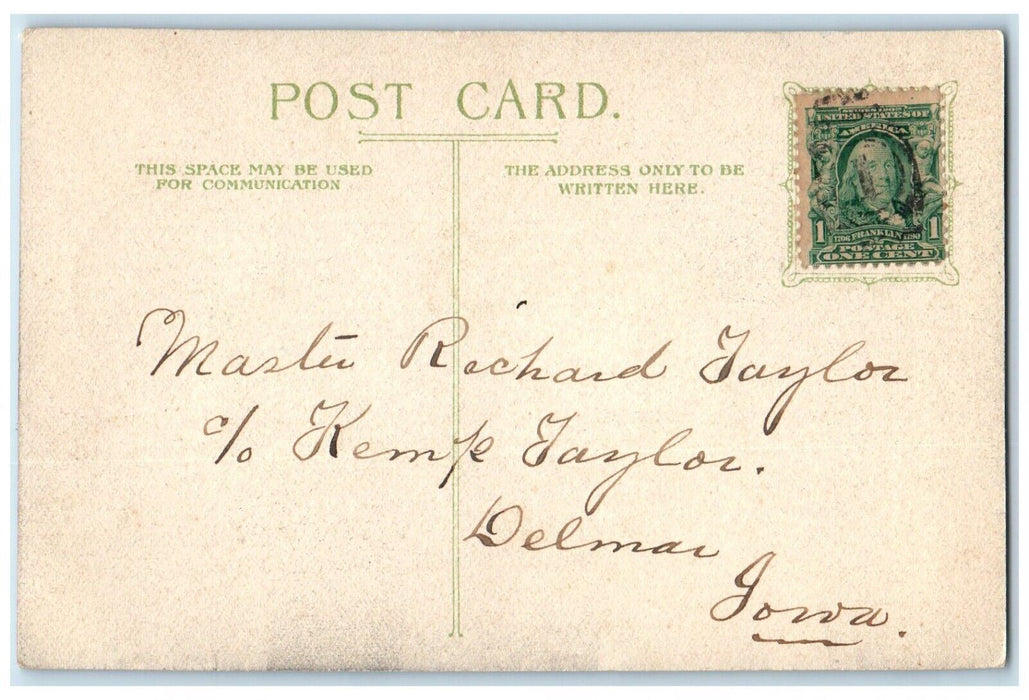 POST CARD.
THIS SPACE MAY BE USED
FOR COMMUNICATION
THE ADDRESS ONLY TO BE
WRITTEN HERE.
UNITED STATES OF
AMERICA
1 1706 FRANKLIN 1790 1
POSTAGE
ONE CENT
Master Richard Taylor
c/o Kemp Taylor.
Delmar
Iowa.